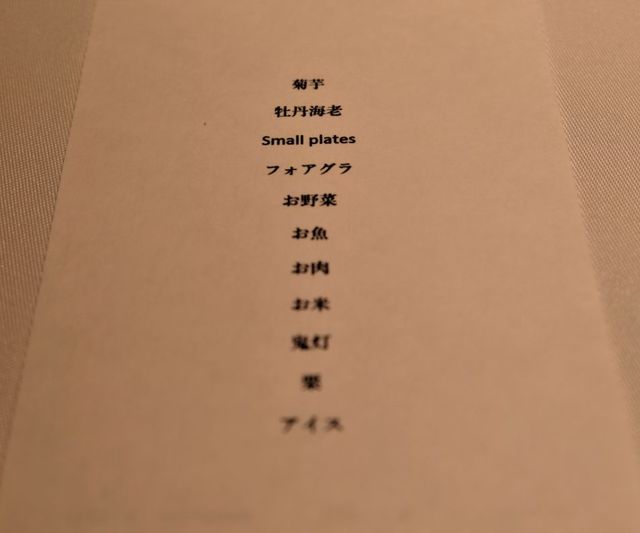 菊芋
牡丹海老
Small plates
フォアグラ
お野菜
お魚
お肉
お米
鬼灯
栗
アイス